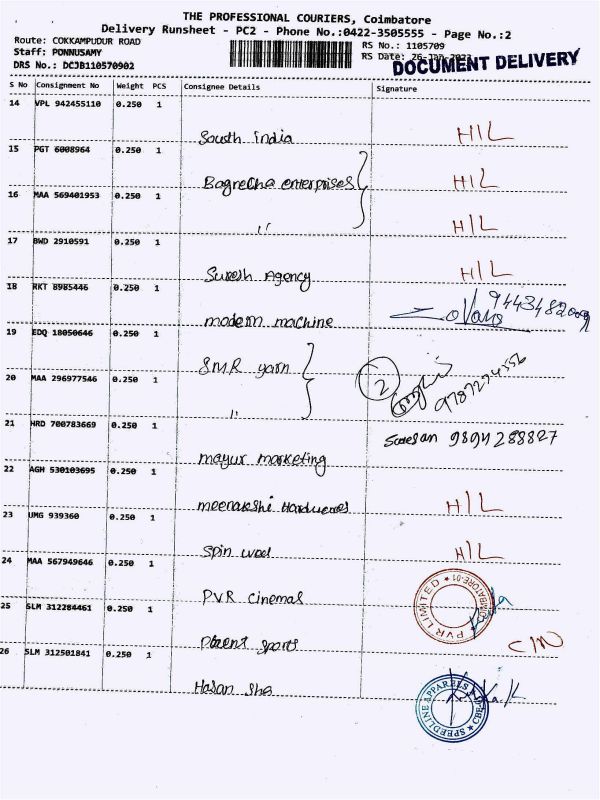 THE PROFESSIONAL COURIERS, Coimbatore
Delivery Runsheet - PC2 - Phone No.:0422-3505555 - Page No.:2
Route: COKKAMPUDUR ROAD RS No.: 1105709
Staff: PONNUSAMY RS Date: 26-Jan-2023
DRS No.: DCJB110570902 DOCUMENT DELIVERY
S No Consignment No Weight PCS Consignee Details Signature
14 VPL 942455110 0.250 1
South india H/L
15 PGT 6008964 0.250 1
Bagrecha enterprises H/L
16 MAA 569401953 0.250 1
" H/L
17 BWD 2910591 0.250 1
Suresh Agency H/L
18 RKT 8985446 0.250 1
modern machine
19 EDQ 18050646 0.250 1
SMR yarn 2
20 MAA 296977546 0.250 1
" 9787274556
21 HRD 700783669 0.250 1
mayur marketing 9894288827
22 AGH 530103695 0.250 1
meenakshi Hardwares H/L
23 UMG 939360 0.250 1
Spin wed H/L
24 MAA 567949646 0.250 1
PVR Cinemas PVR LIMITED COIMBATORE-01
25 SLM 312284461 0.250 1
sports C/N
26 SLM 312501841 0.250 1
Hasan Sha SPEEDLINE APPARELS